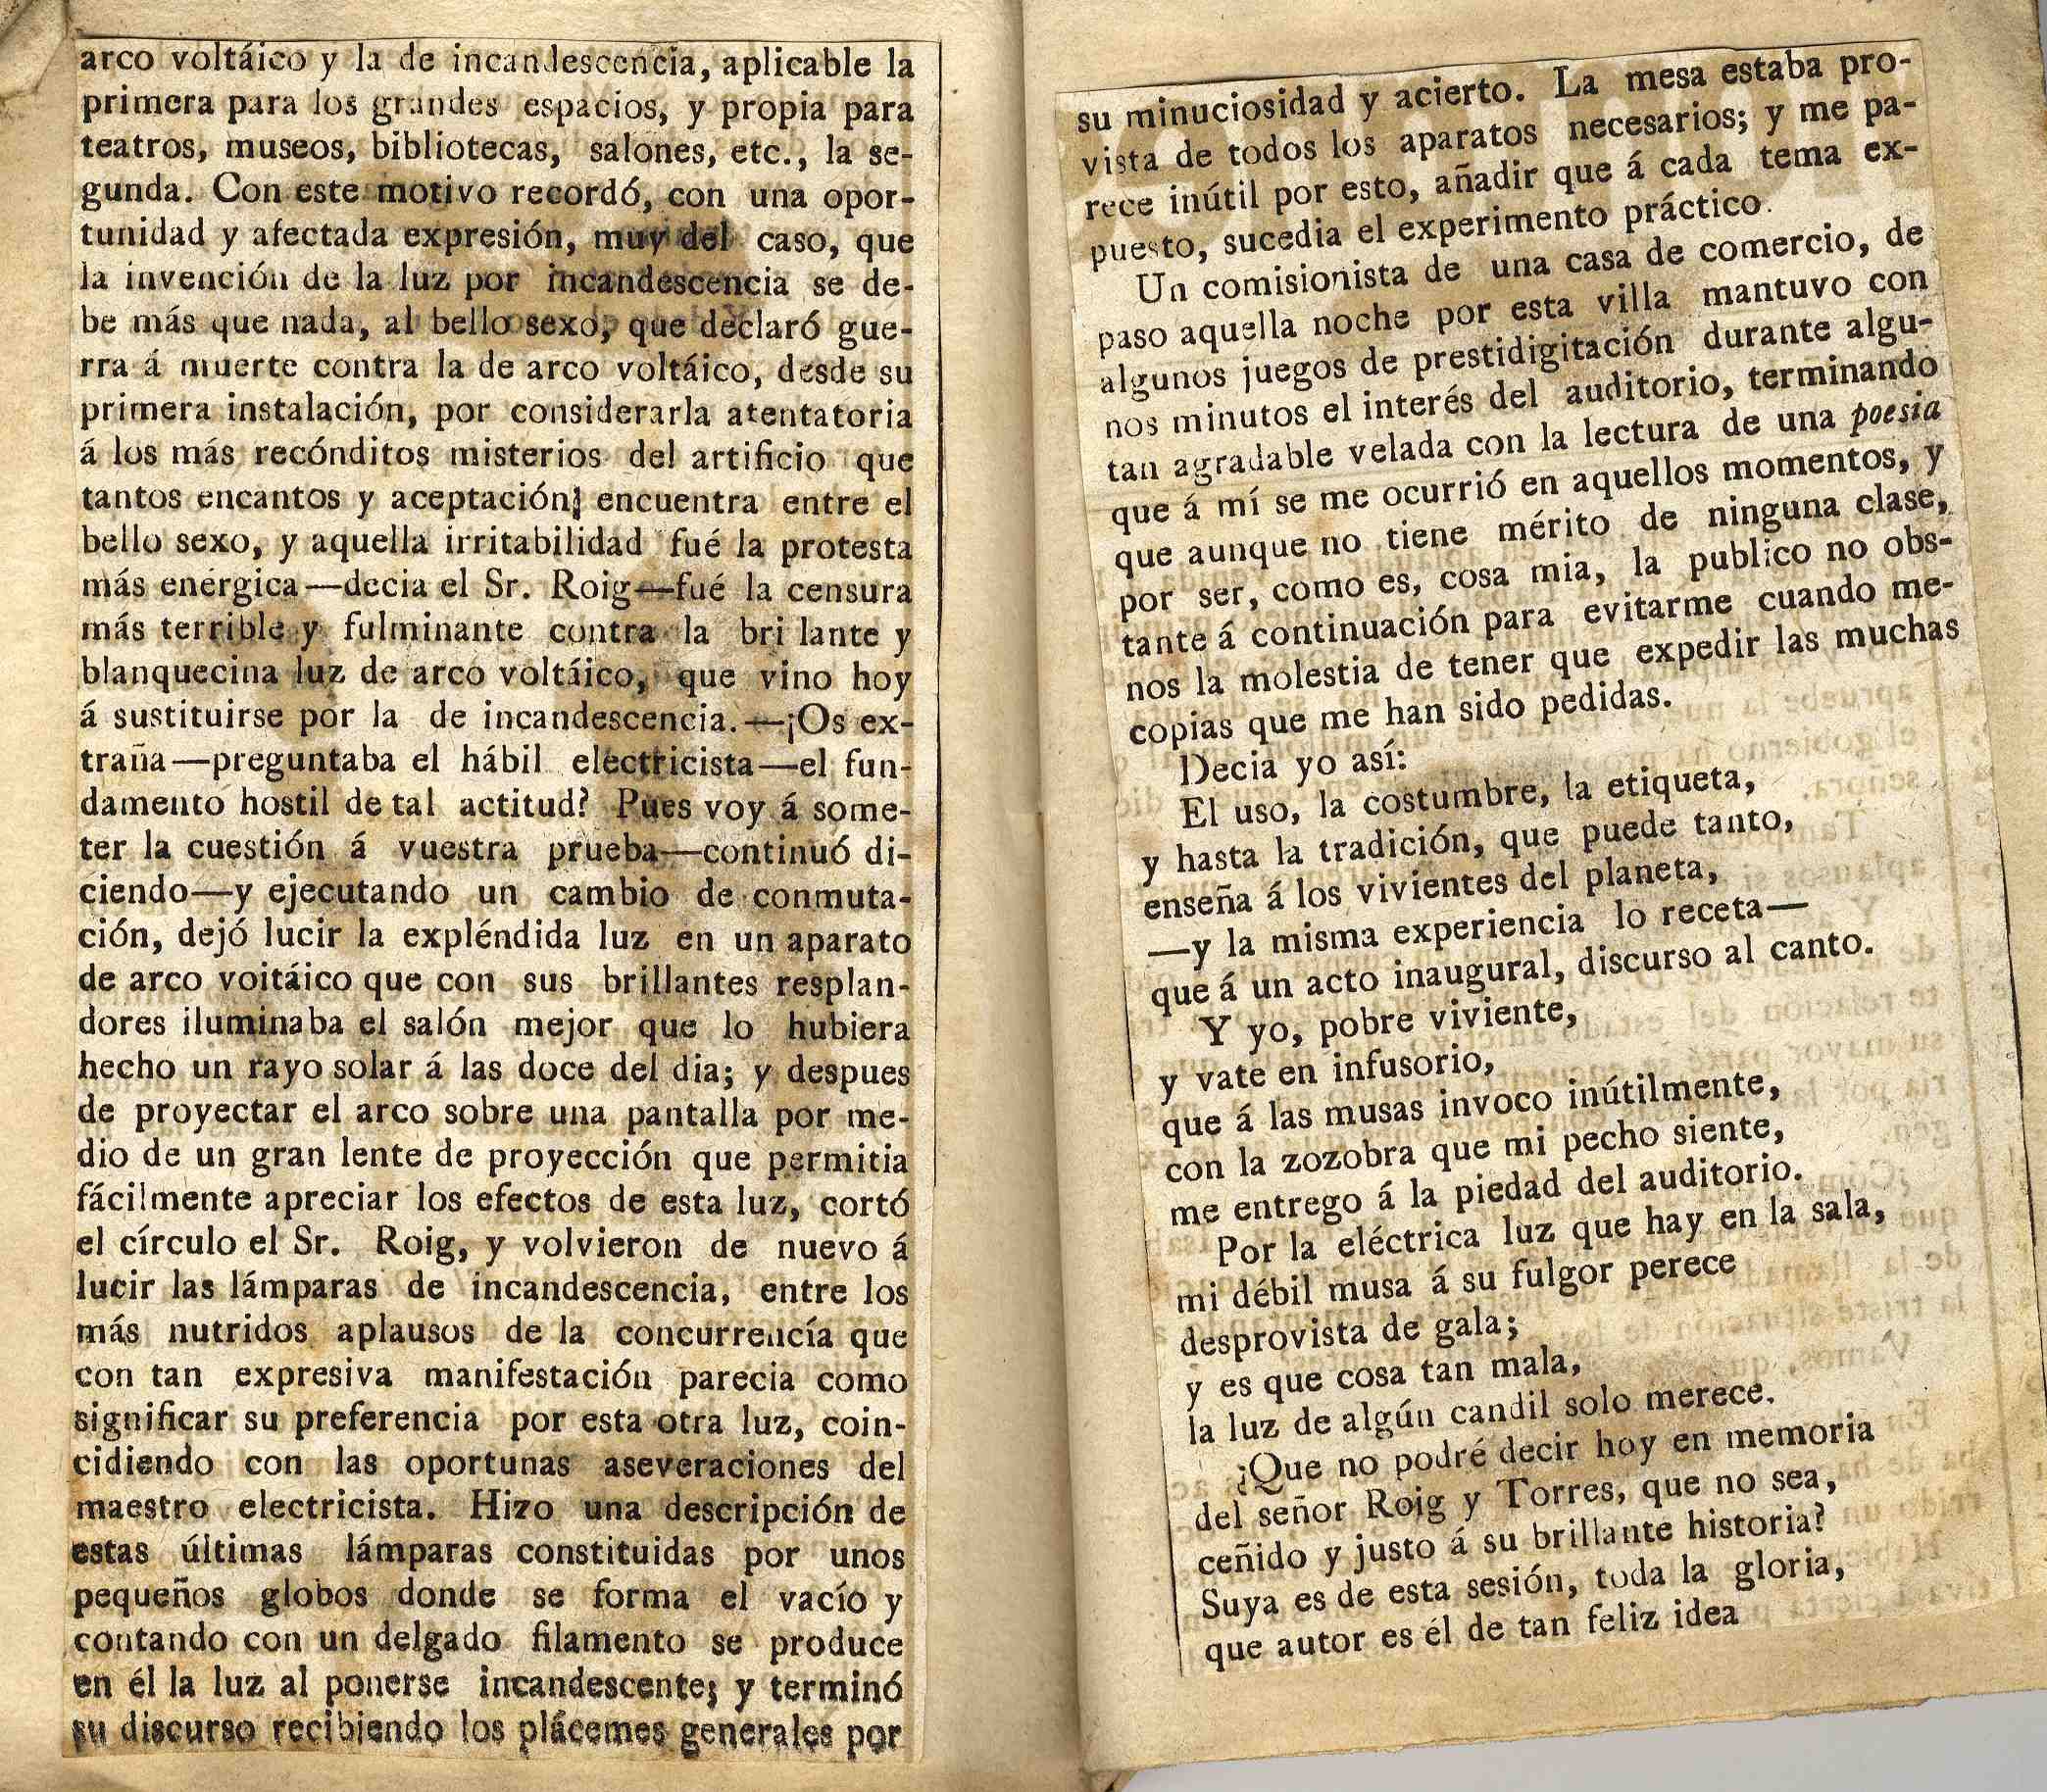 arco voltáico y la de incandescencia, aplicable la
primera para los grandes espacios, y propia para
teatros, museos, bibliotecas, salones, etc., la se-
gunda. Con este motivo recordó, con una opor-
tunidad y afectada expresión, muy del caso, que
la invención de la luz por incandescencia se de-
be más que nada, al bello sexo, que declaró gue-
rra á muerte contra la de arco voltáico, desde su
primera instalación, por considerarla atentatoria
á los más recónditos misterios del artificio que
tantos encantos y aceptación; encuentra entre el
bello sexo, y aquella irritabilidad fué la protesta
más enérgica—decia el Sr. Roig—fué la censura
más terrible y fulminante contra la bri lante y
blanquecina luz de arco voltáico, que vino hoy
á sustituirse por la de incandescencia.—¡Os ex-
traña—preguntaba el hábil electricista—el fun-
damento hostil de tal actitud? Pues voy á some-
ter la cuestión á vuestra prueba—continuó di-
ciendo—y ejecutando un cambio de conmuta-
ción, dejó lucir la expléndida luz en un aparato
de arco voitáico que con sus brillantes resplan-
dores iluminaba el salón mejor que lo hubiera
hecho un rayo solar á las doce del dia; y despues
de proyectar el arco sobre una pantalla por me-
dio de un gran lente de proyección que permitia
fácilmente apreciar los efectos de esta luz, cortó
el círculo el Sr. Roig, y volvieron de nuevo á
lucir las lámparas de incandescencia, entre los
más nutridos aplausos de la concurrencía que
con tan expresiva manifestación parecia como
significar su preferencia por esta otra luz, coin-
cidiendo con las oportunas aseveraciones del
maestro electricista. Hizo una descripción de
estas últimas lámparas constituidas por unos
pequeños globos donde se forma el vacío y
contando con un delgado filamento se produce
en él la luz al ponerse incandescente; y terminó
su discurso recibiendo los plácemes generales por
su minuciosidad y acierto. La mesa estaba pro-
vista de todos los aparatos necesarios; y me pa-
rece inútil por esto, añadir que á cada tema ex-
puesto, sucedia el experimento práctico.
Un comisionista de una casa de comercio, de
paso aquella noche por esta villa mantuvo con
algunos juegos de prestidigitación durante algu-
nos minutos el interés del auditorio, terminando
tan agradable velada con la lectura de una poesia
que á mí se me ocurrió en aquellos momentos, y
que aunque no tiene mérito de ninguna clase,
por ser, como es, cosa mia, la publico no obs-
tante á continuación para evitarme cuando me-
nos la molestia de tener que expedir las muchas
copias que me han sido pedidas.
Decia yo así:
El uso, la costumbre, la etiqueta,
y hasta la tradición, que puede tanto,
enseña á los vivientes del planeta,
—y la misma experiencia lo receta—
que á un acto inaugural, discurso al canto.
Y yo, pobre viviente,
y vate en infusorio,
que á las musas invoco inútilmente,
con la zozobra que mi pecho siente,
me entrego á la piedad del auditorio.
Por la eléctrica luz que hay en la sala,
mi débil musa á su fulgor perece
desprovista de gala;
y es que cosa tan mala,
la luz de algún candil solo merece.
¿Que no podré decir hoy en memoria
del señor Roig y Torres, que no sea,
ceñido y justo á su brillante historia?
Suya es de esta sesión, toda la gloria,
que autor es él de tan feliz idea